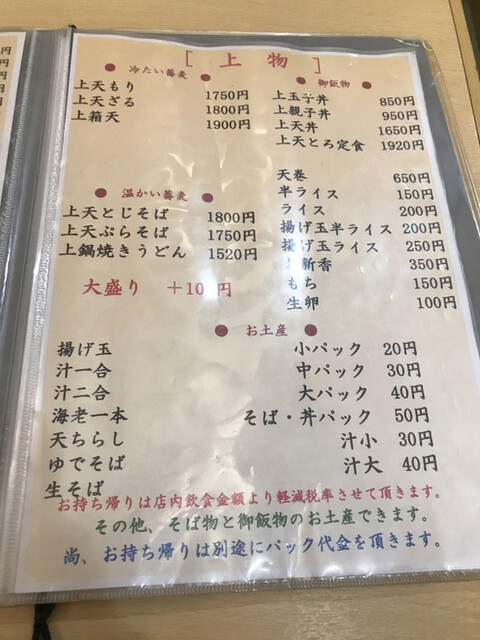 [ 上 物 ]
● 冷たい蕎麦 ●
上天もり 1750円
上天ざる 1800円
上箱天 1900円
● 温かい蕎麦 ●
上天とじそば 1800円
上天ぷらそば 1750円
上鍋焼きうどん 1520円
大盛り +10円
● 御飯物 ●
上玉子丼 850円
上親子丼 950円
上天丼 1650円
上天とろ定食 1920円
天巻 650円
半ライス 150円
ライス 200円
揚げ玉半ライス 200円
揚げ玉ライス 250円
新香 350円
もち 150円
生卵 100円
● お土産 ●
揚げ玉
汁一合
汁二合
海老一本
天ちらし
ゆでそば
生そば
小パック 20円
中パック 30円
大パック 40円
そば・丼パック 50円
汁小 30円
汁大 40円
お持ち帰りは店内飲食金額より軽減税率させて頂きます。
その他、そば物と御飯物のお土産できます。
尚、お持ち帰りは別途にパック代金を頂きます。